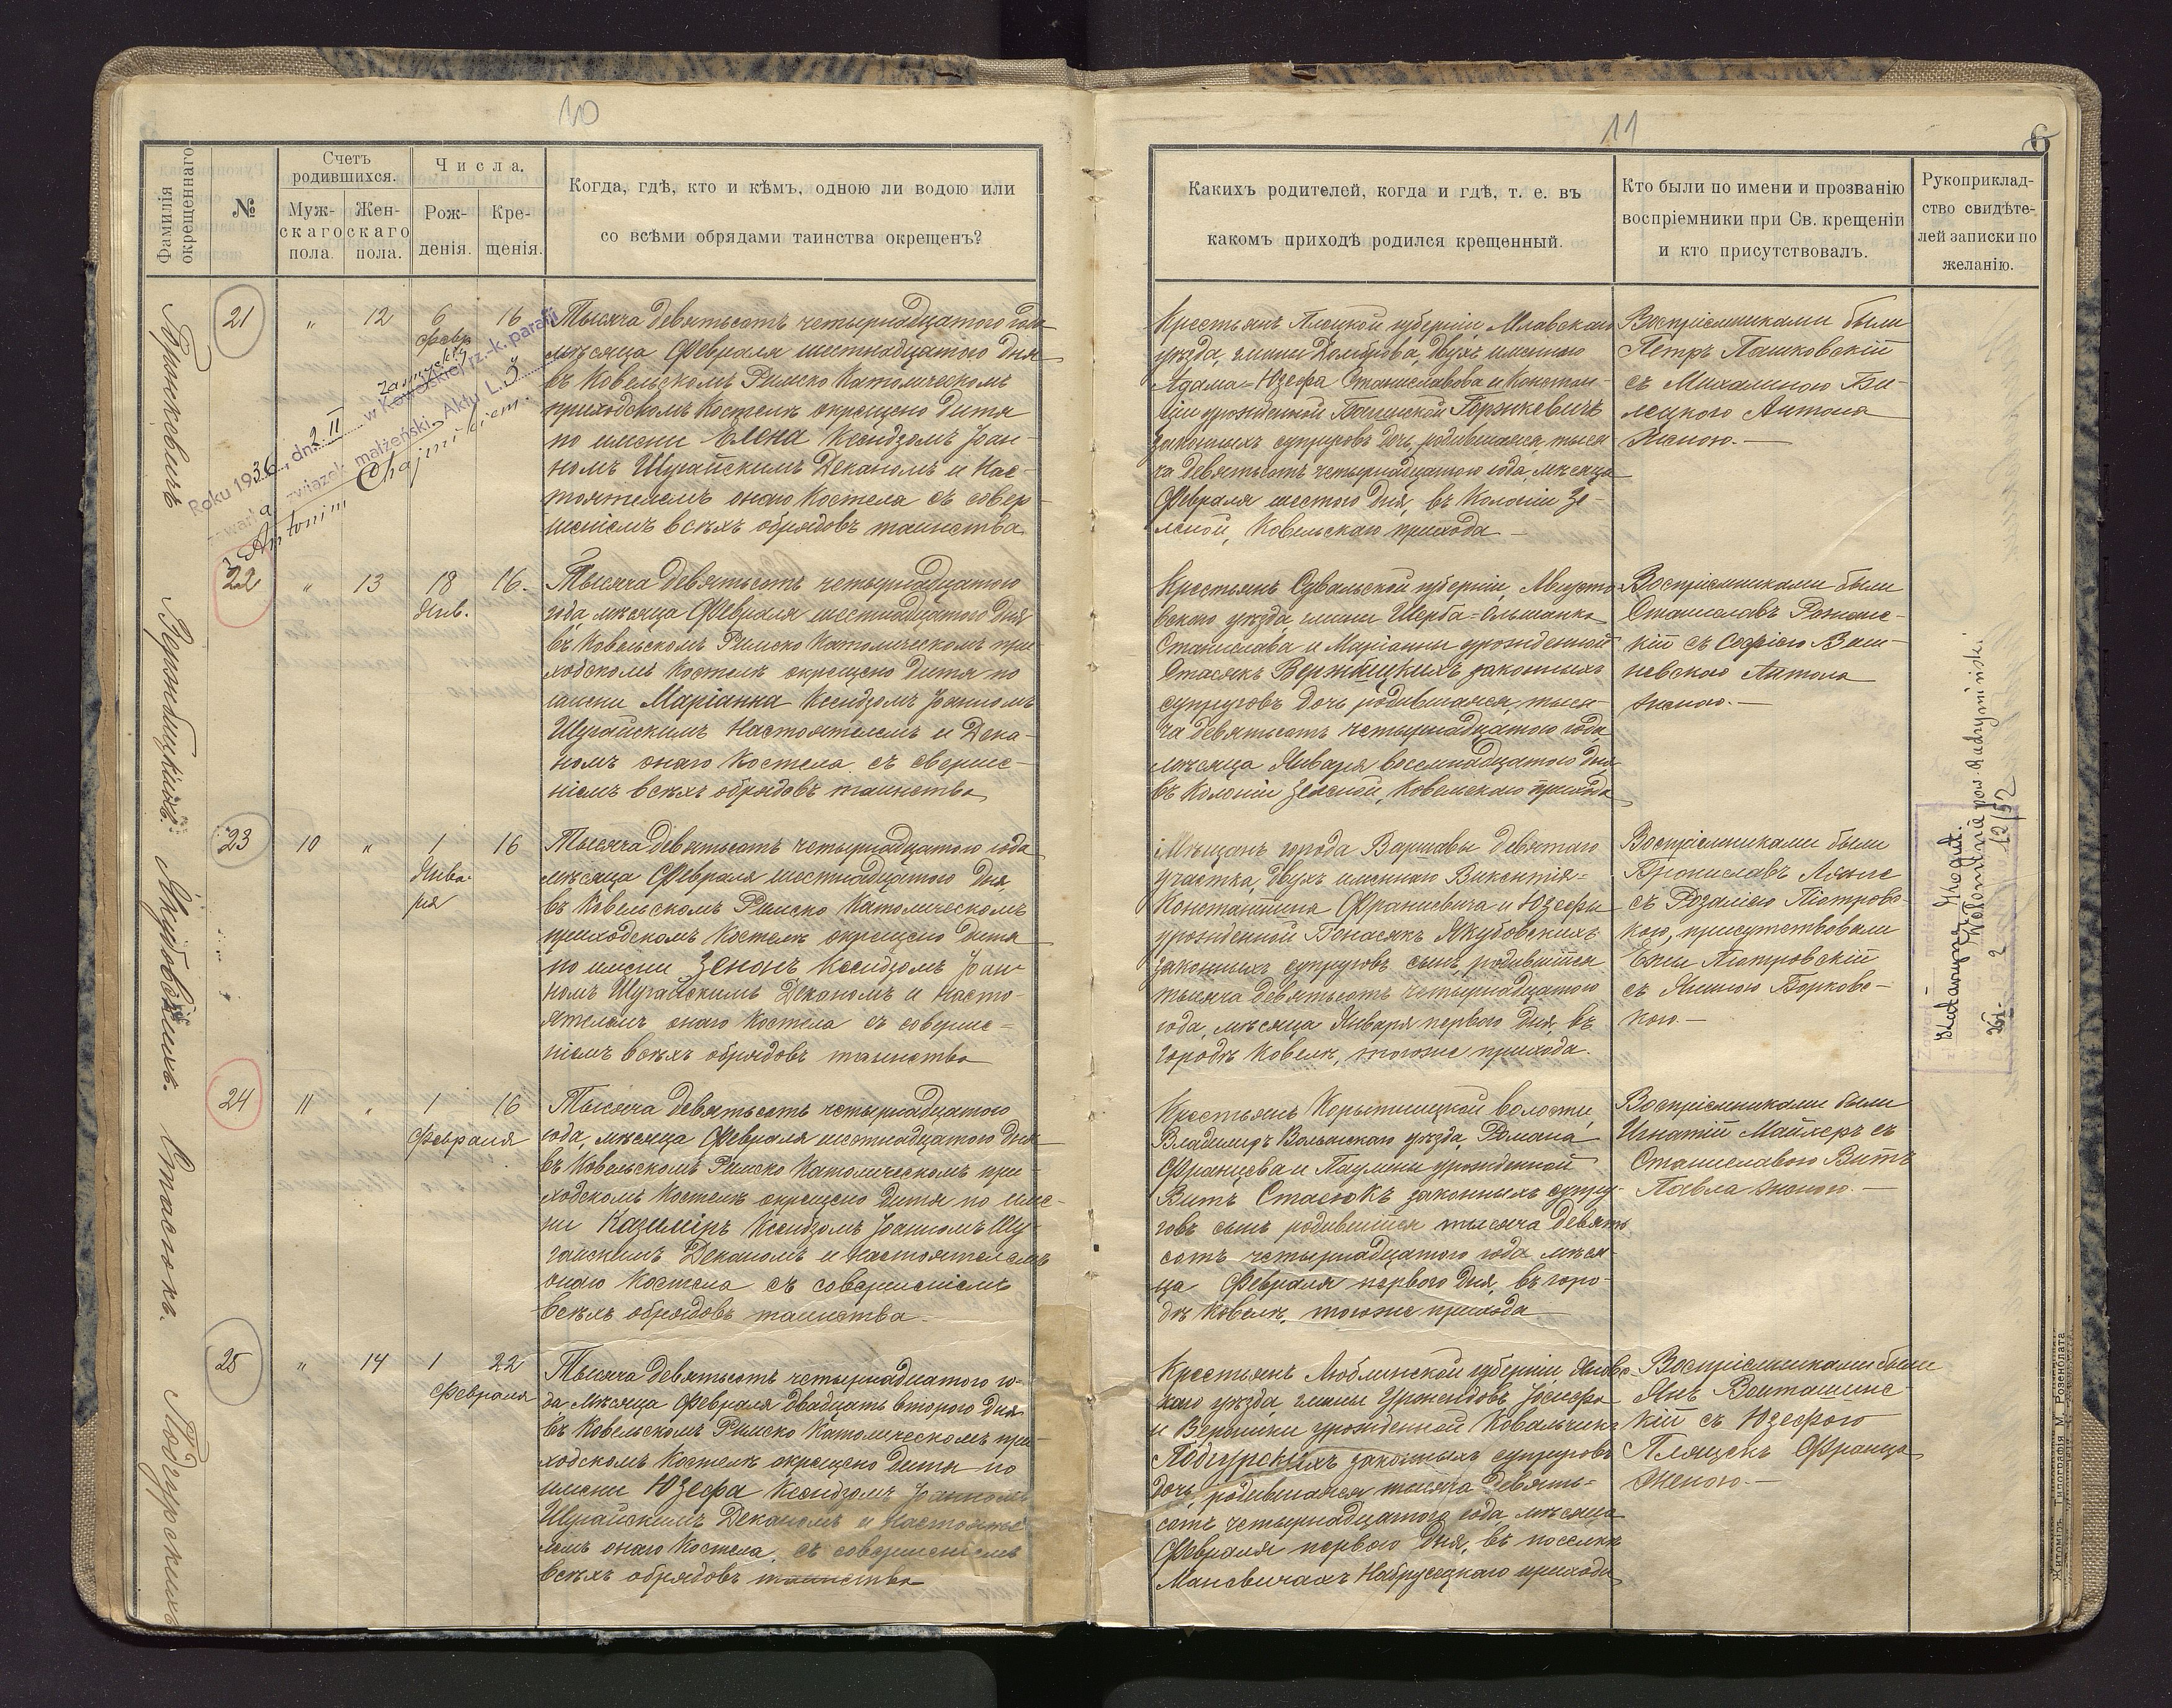 10
Фамилія окрещеннаго
№
Счетъ родившихся.
Мужскаго пола.
Женскаго пола.
Числа.
Рожденія.
Крещенія.
Когда, гдѣ, кто и кѣмъ, одною ли водою или
со всѣми обрядами таинства окрещенъ?
21
"
12
6
февр
16
Тысяча девятьсотъ четырнадцатого года
мѣсяца Февраля шестнадцатого дня
въ Ковельскомъ Римско Католическомъ
приходскомъ Костелѣ окрещено дитя
по имени Елена Ксендзомъ Іоан-
номъ Шугайскимъ Деканомъ и Нас-
тоятелемъ онаго Костела съ совер-
шеніемъ всѣхъ обрядовъ таинства
Roku 1936, dn. 2 II w Kowelskiej rz.-k. parafji
związek małżeński. Aktu L. 3
z Antonim
22
"
13
18
Янв.
16.
Тысяча девятьсотъ четырнадцатого
года, мѣсяца Февраля шестнадцатого дня
въ Ковельскомъ Римско Католическомъ при
ходскомъ Костелѣ окрещено дитя по
имени Маріанна Ксендзомъ Іоанномъ
Шугайскимъ Настоятелемъ и Дека-
номъ онаго Костела съ сверше-
ніемъ всѣхъ обрядовъ таинства
Якубовскихъ.
23
10
"
1
Янва-
ря
16
Тысяча девятьсотъ четырнадцатого года
мѣсяца Февраля шестнадцатого дня
въ Ковельскомъ Римско Католическомъ
приходскомъ Костелѣ окрещено дитя
по имени Зенонъ Ксендзомъ Іоан-
номъ Шугайскимъ Деканомъ и Насто-
ятелемъ онаго Костела съ соверше-
ніемъ всѣхъ обрядовъ таинства
Стасюкъ.
24
11
"
1
Февраля
16
Тысяча девятьсотъ четырнадцатого
года, мѣсяца Февраля шестнадцатого дня
въ Ковельскомъ Римско Католическомъ при-
ходскомъ Костелѣ окрещено дитя по име-
ни Казиміръ Ксендзомъ Іоанномъ Шу-
гайскимъ Деканомъ и Настоятелемъ
онаго Костела съ совершеніемъ
всѣхъ обрядовъ таинства.
Подгурскихъ
25
"
14
1
Февраля
22
Тысяча девятьсотъ четырнадцатого го-
да мѣсяца Февраля двадцать второго дня
въ Ковельскомъ Римско Католическомъ при-
ходскомъ Костелѣ окрещено дитя по
имени Юзефа Ксендзомъ Іоанномъ
Шугайскимъ Деканомъ и Настояте
лемъ онаго Костела, съ совершеніемъ
всѣхъ обрядовъ таинства
11
6
Какихъ родителей, когда и гдѣ, т. е. въ
какомъ приходѣ родился крещенный.
Кто были по имени и прозванію
воспріемники при Св. крещеніи
и кто присутствовалъ.
Рукоприклад-
ство свидѣте-
лей записки по
желанію.
Крестьянъ Плоцкой губерніи Млавскаго
уѣзда, гмины Домброва, двухъ именнаго
Адама-Юзефа Станиславова и Констан-
ціи урожденной
законныхъ супруговъ дочь, родившаяся тыся
ча девятьсотъ четырнадцатого года, мѣсяца
Февраля шестого дня, въ Колоніи Зе-
леной, Ковельскаго прихода —
Воспріемниками были
Петръ Пашковскій
съ Михалиною
Антона
женою. —
Крестьянъ Сувалской губерніи, Августо-
вскаго уѣзда гмины Щерба-Ольшанка
Станислава и Маріанны урожденной
Стасякъ Вержбицкихъ законныхъ
супруговъ дочь, родившаяся, тыся-
ча девятьсотъ четырнадцатого года
мѣсяца Января восемнадцатого дня
въ Колоніи Зеленой, Ковельскаго прихода
Воспріемниками были
Станиславъ
кій съ Софіею
невскаго Антона
женою. —
Мѣщанъ города Варшавы девятаго
участка, двухъ именнаго Викентія-
Константина Франчевича и Юзефы
урожденной Бенасякъ Якубовскихъ
законныхъ супруговъ сынъ, родившійся
тысяча девятьсотъ четырнадцатого
года, мѣсяца Января первого дня, въ
городѣ Ковелѣ, тогоже прихода.
Воспріемниками были
Брониславъ
съ Розаліею Піотровс-
кою, присутствовали
Піотровскій
съ Яниною Борковс-
кою. —
Крестьянъ Корытницкой волости,
Владимиръ Волынскаго уѣзда, Романа
Францева и Паулины урожденной
Витъ Стасюкъ законныхъ супру-
говъ сынъ родившійся тысяча девять
сотъ четырнадцатого года мѣся-
ца Февраля первого дня, въ горо-
дѣ Ковелѣ, тогоже прихода
Воспріемниками были
Игнатій Майхеръ съ
Станиславою Витъ
Павла женою. —
Крестьянъ Люблинской губерніи Яновс-
каго уѣзда, гмины Іосифа
и Вероники урожденной Ковальчикъ
Подгурскихъ законныхъ супруговъ
дочь, родившаяся тысяча девять-
сотъ четырнадцатого года, мѣсяца
Февраля первого дня, въ поселкѣ
Маневичахъ прихода
Воспріемниками были
Янъ Войташинс-
кій съ Юзефою
Франца
женою. —
Житомиръ. Типографія М. Розенблата